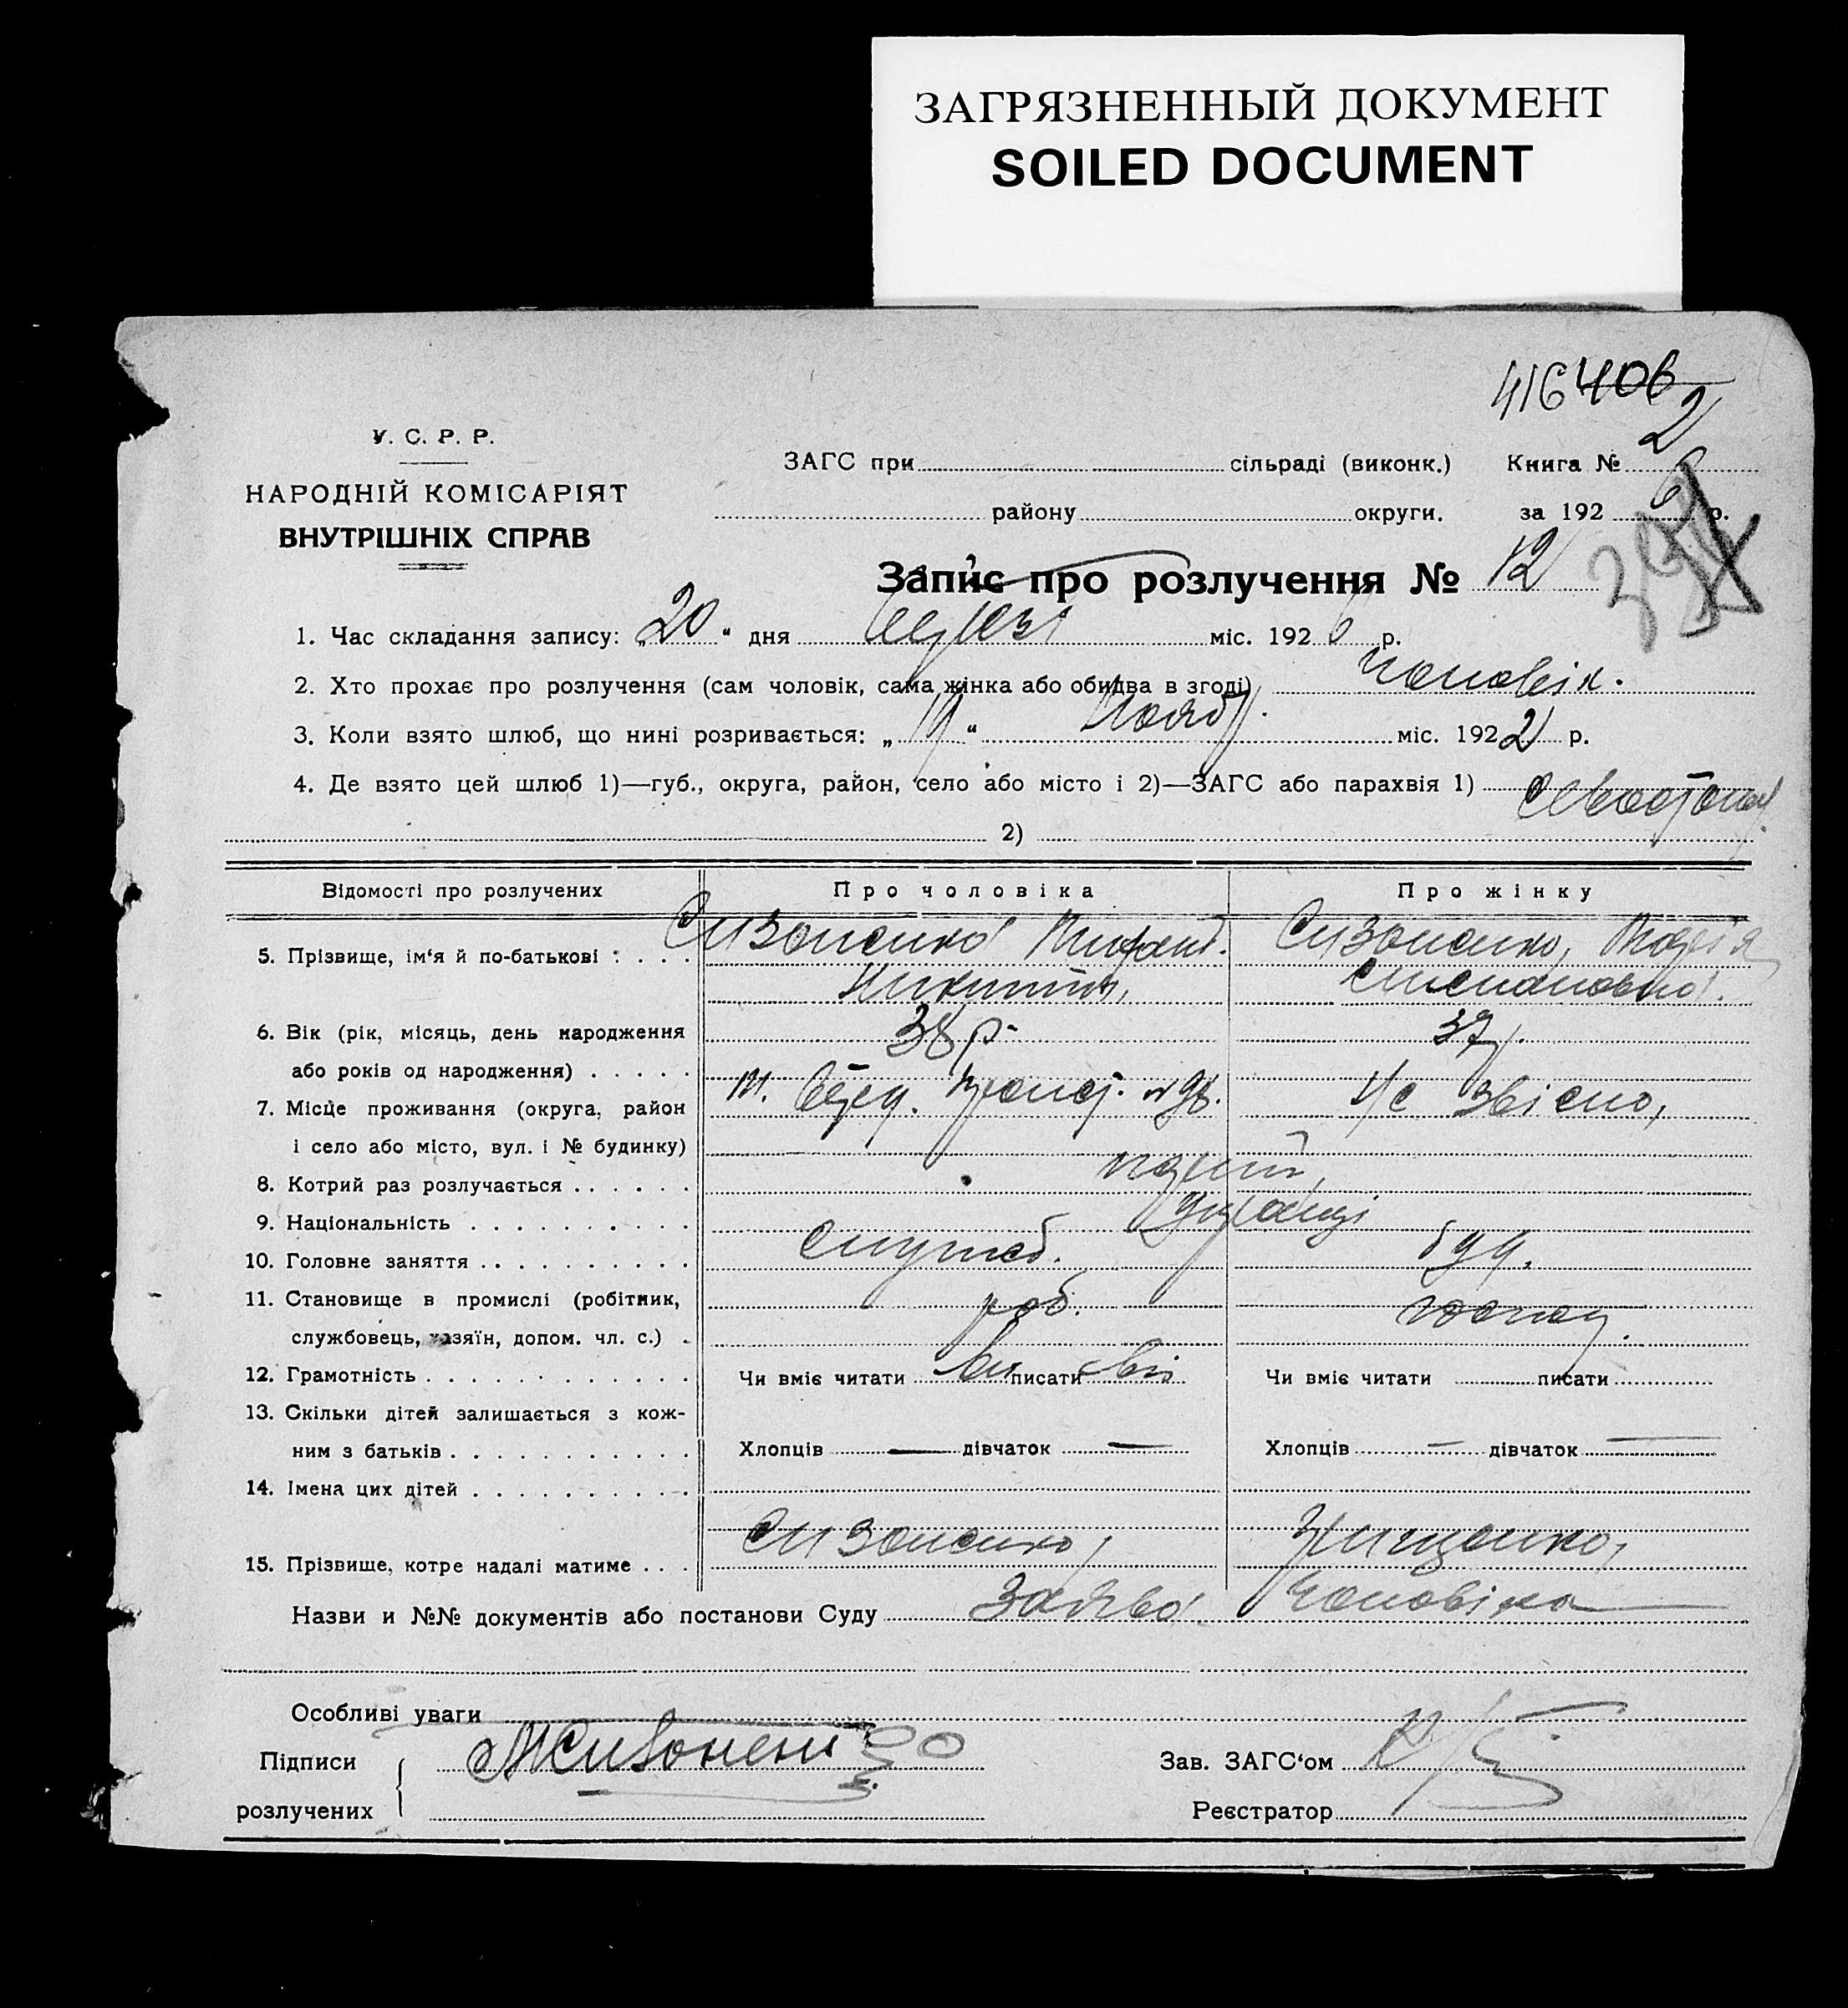 ЗАГРЯЗНЕННЫЙ ДОКУМЕНТ
SOILED DOCUMENT
416 406
У. С. Р. Р.
НАРОДНІЙ КОМІСАРІЯТ
ВНУТРІШНІХ СПРАВ
ЗАГС при сільраді (виконк.) Книга № 2
району округи. за 192 6 р.
Запис про розлучення № 12
1. Час складання запису: „20“ дня міс. 1926 р.
2. Хто прохає про розлучення (сам чоловік, сама жінка або обидва в згоді) чоловік.
3. Коли взято шлюб, що нині розривається: „ “ Нояб. міс. 1922 р.
4. Де взято цей шлюб 1)—губ., округа, район, село або місто і 2)—ЗАГС або парахвія 1) Севастопол
2)
Відомості про розлучених Про чоловіка Про жінку
5. Прізвище, ім‘я й по-батькові : . . . Сизоненко Сизоненко,
6. Вік (рік, місяць, день народження 38 р. 37 р.
або років од народження) . . . . .
7. Місце проживання (округа, район № 98. Не звісно,
і село або місто, вул. і № будинку)
8. Котрий раз розлучається . . . . . .
9. Національність . . . . . . . . . . Українці
10. Головне заняття . . . . . . . . . . служб.
11. Становище в промислі (робітник, роб. господ.
службовець, хазяїн, допом. чл. с.) .
12. Грамотність . . . . . . . . . . . . Чи вміє читати вм писати вм Чи вміє читати писати
13. Скільки дітей залишається з кож-
ним з батьків . . . . . . . . . . . Хлопців — дівчаток — Хлопців — дівчаток —
14. Імена цих дітей . . . . . . . . . .
15. Прізвище, котре надалі матиме . . . Сизоненко, Грищенко,
Назви и №№ документів або постанови Суду Заява чоловіка
Особливі уваги
Підписи МСизоненко Зав. ЗАГС‘ом
розлучених Реєстратор